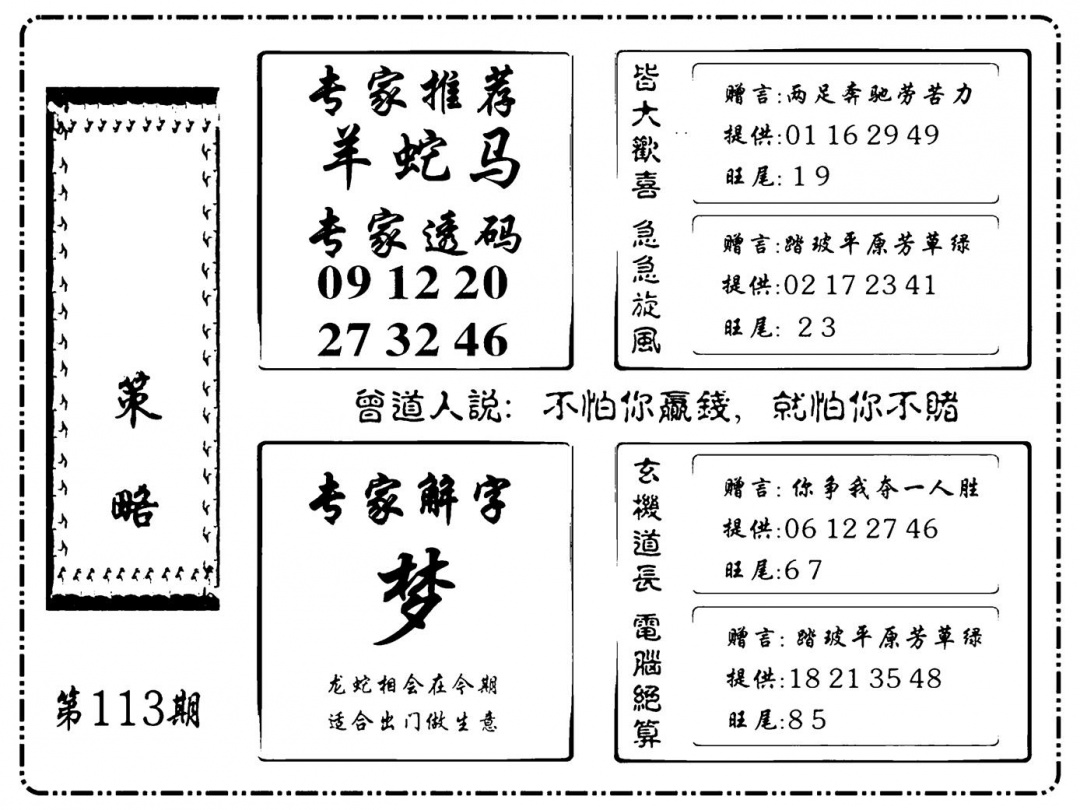 策
略
第113期
专家推荐
羊蛇马
专家透码
09 12 20
27 32 46
皆大歡喜
赠言:两足奔驰劳苦力
提供:01 16 29 49
旺尾: 1 9
急急旋風
赠言:踏玻平原芳草绿
提供:02 17 23 41
旺尾: 2 3
曾道人説: 不怕你贏錢, 就怕你不賭
专家解字
梦
龙蛇相会在今期
适合出门做生意
玄機道長
赠言: 你争我夺一人胜
提供:06 12 27 46
旺尾:6 7
電腦絕算
赠言: 踏玻平原芳草绿
提供:18 21 35 48
旺尾:8 5